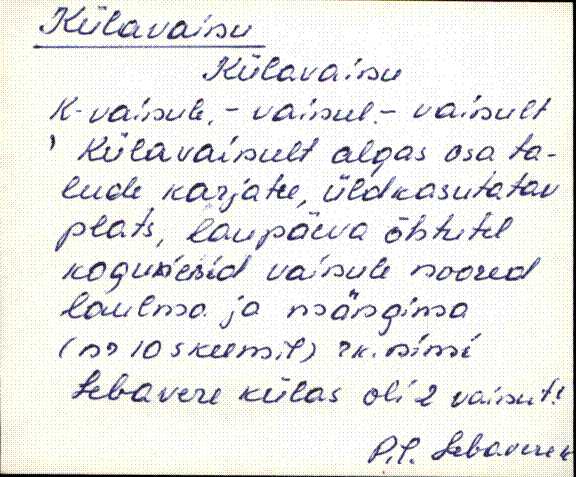 Külavainu
Külavainu
K-vainule, - vainul, - vainult
Külavainult algas osa ta-
lude karjatee, üldkasutatav
plats, laupäeva õhtutel
kogunesid vainule noored
laulma ja mängima
(nr 10 skeemil) rk. nimi
Lebavere külas oli 2 vainut!
P.l. Lebavere k